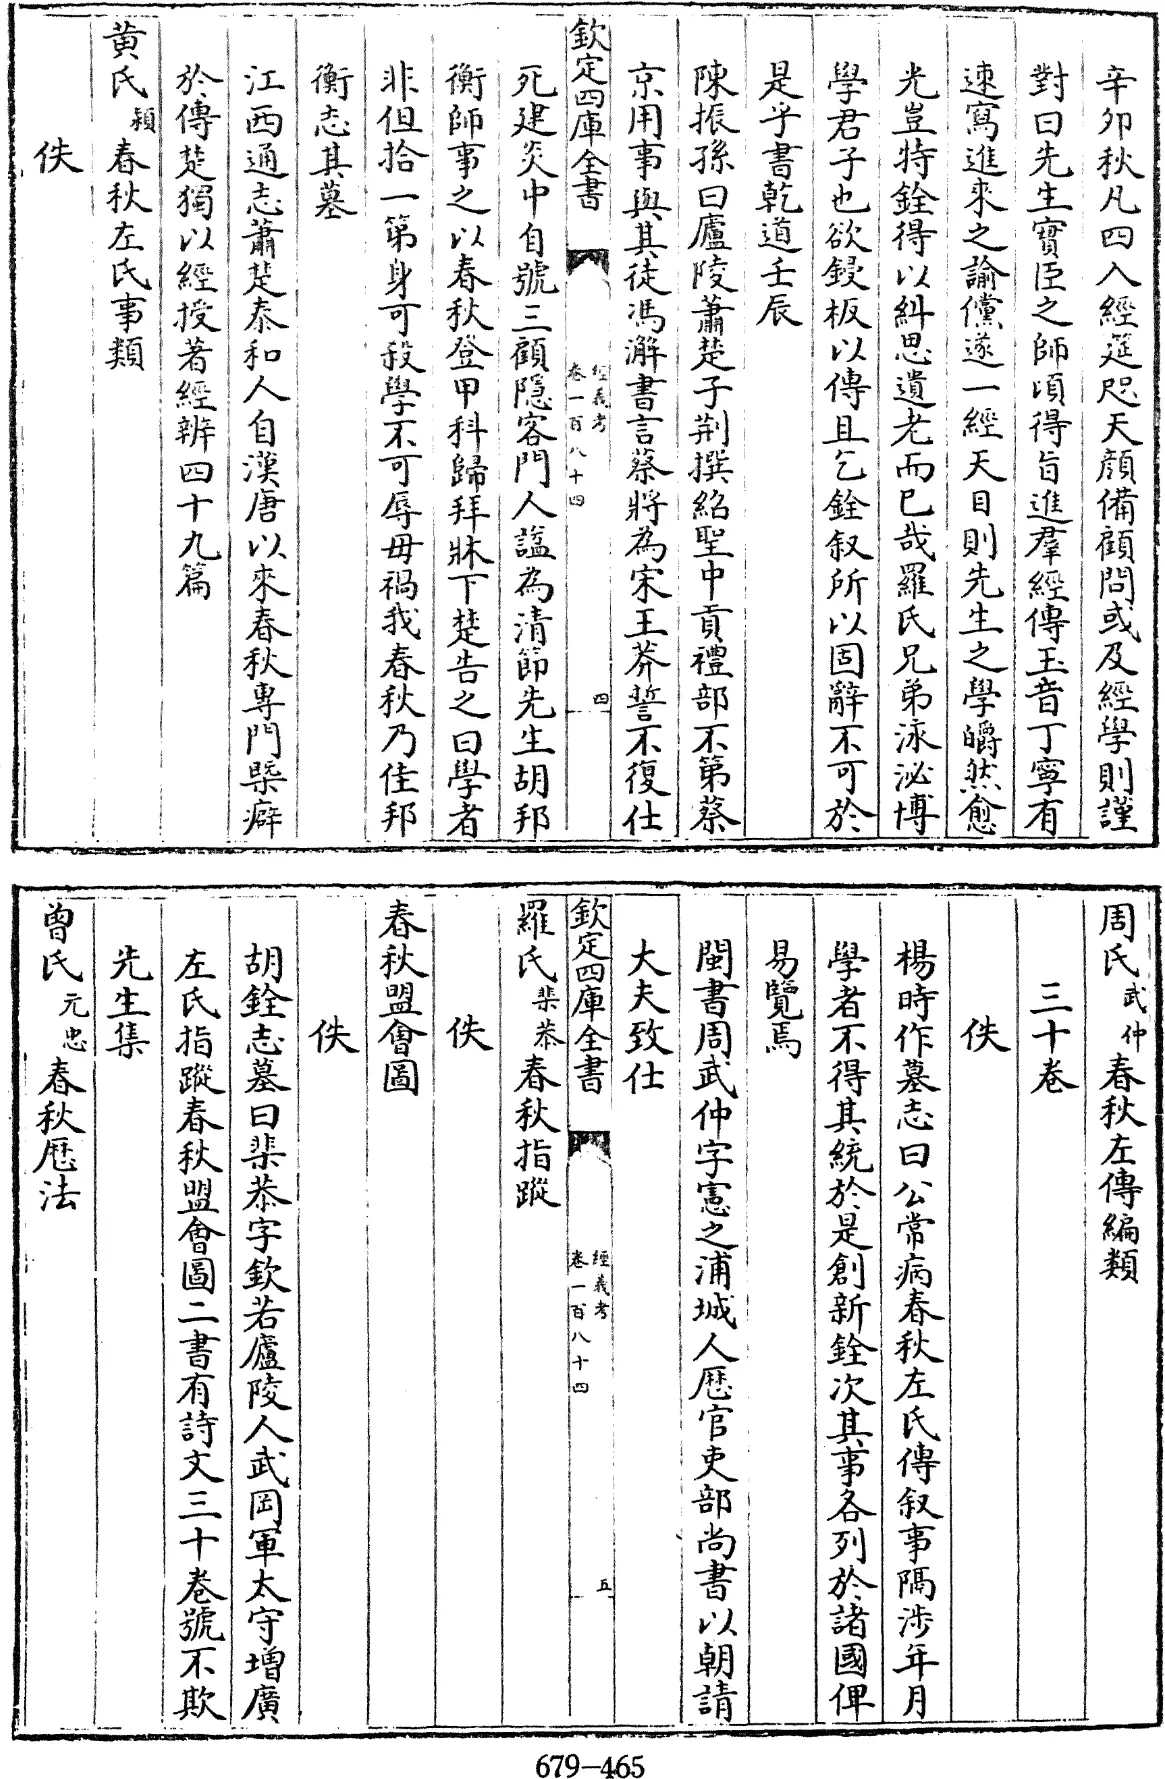 辛卯秋凡四入經筵咫天顔備顧問或及經學則謹
對曰先生實臣之師頃得旨進羣經傳玉音丁寧有
速寫進來之諭儻遂一經天目則先生之學皭然愈
光豈特銓得以糾思遺老而已哉羅氏兄弟泳泌博
學君子也欲鋟板以傳且乞銓叙所以固辭不可於
是乎書乾道壬辰
陳振孫曰廬陵蕭楚子荆撰紹聖中貢禮部不第蔡
京用事與其徒馮澥書言蔡將為宋王莽誓不復仕
欽定四庫全書
經義考
卷一百八十四
四
死建炎中自號三顧隠客門人諡為清節先生胡邦
衡師事之以春秋登甲科歸拜牀下楚告之曰學者
非但拾一第身可殺學不可辱毋禍我春秋乃佳邦
衡志其墓
江西通志蕭楚泰和人自漢唐以來春秋專門槩癖
於傳楚獨以經授著經辨四十九篇
黄氏穎春秋左氏事類
佚
周氏武仲春秋左傳編類
三十卷
佚
楊時作墓志曰公常病春秋左氏傳叙事隔涉年月
學者不得其統於是創新銓次其事各列於諸國俾
易覽焉
閩書周武仲字憲之浦城人歷官吏部尚書以朝請
大夫致仕
欽定四庫全書
經義考
卷一百八十四
五
羅氏棐恭春秋指蹤
佚
春秋盟會圖
佚
胡銓志墓曰棐恭字欽若廬陵人武岡軍太守增廣
左氏指蹤春秋盟會圖二書有詩文三十卷號不欺
先生集
曾氏元忠春秋歷法
679-465